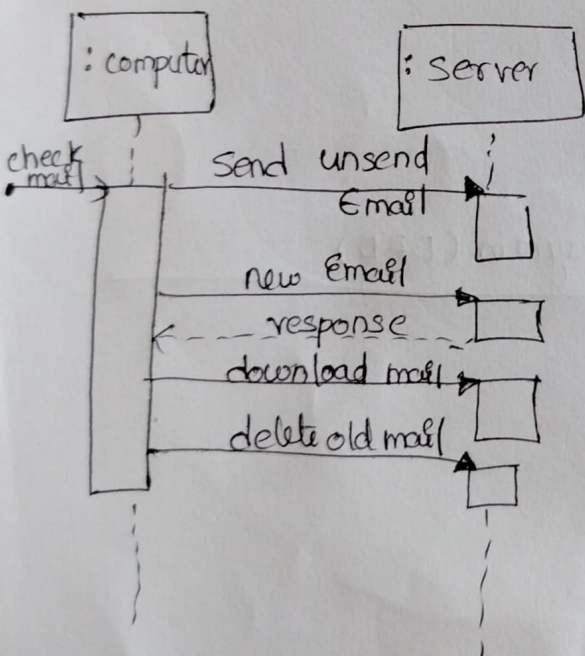 : computer
: server
check
mail
Send unsend
Email
new Email
response
download mail
delete old mail